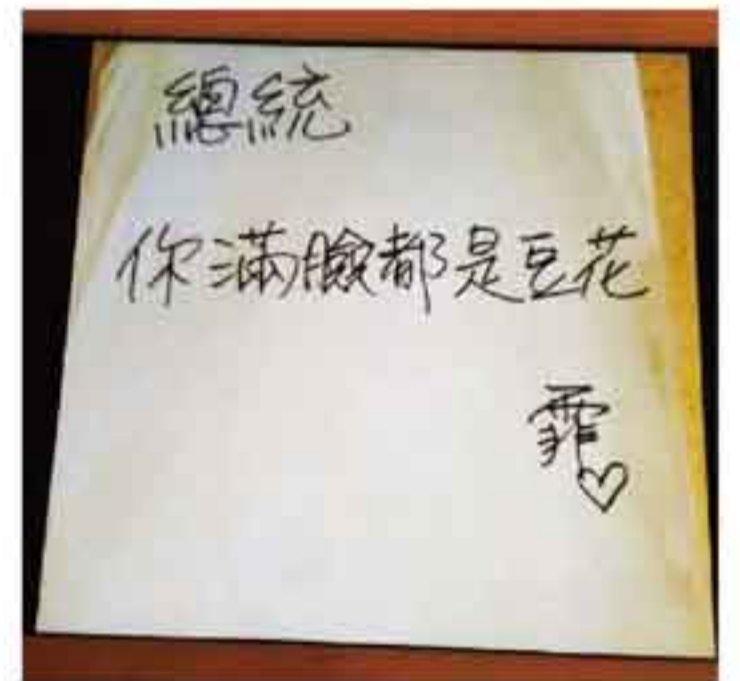 總統
你滿臉都是豆花
霏♡